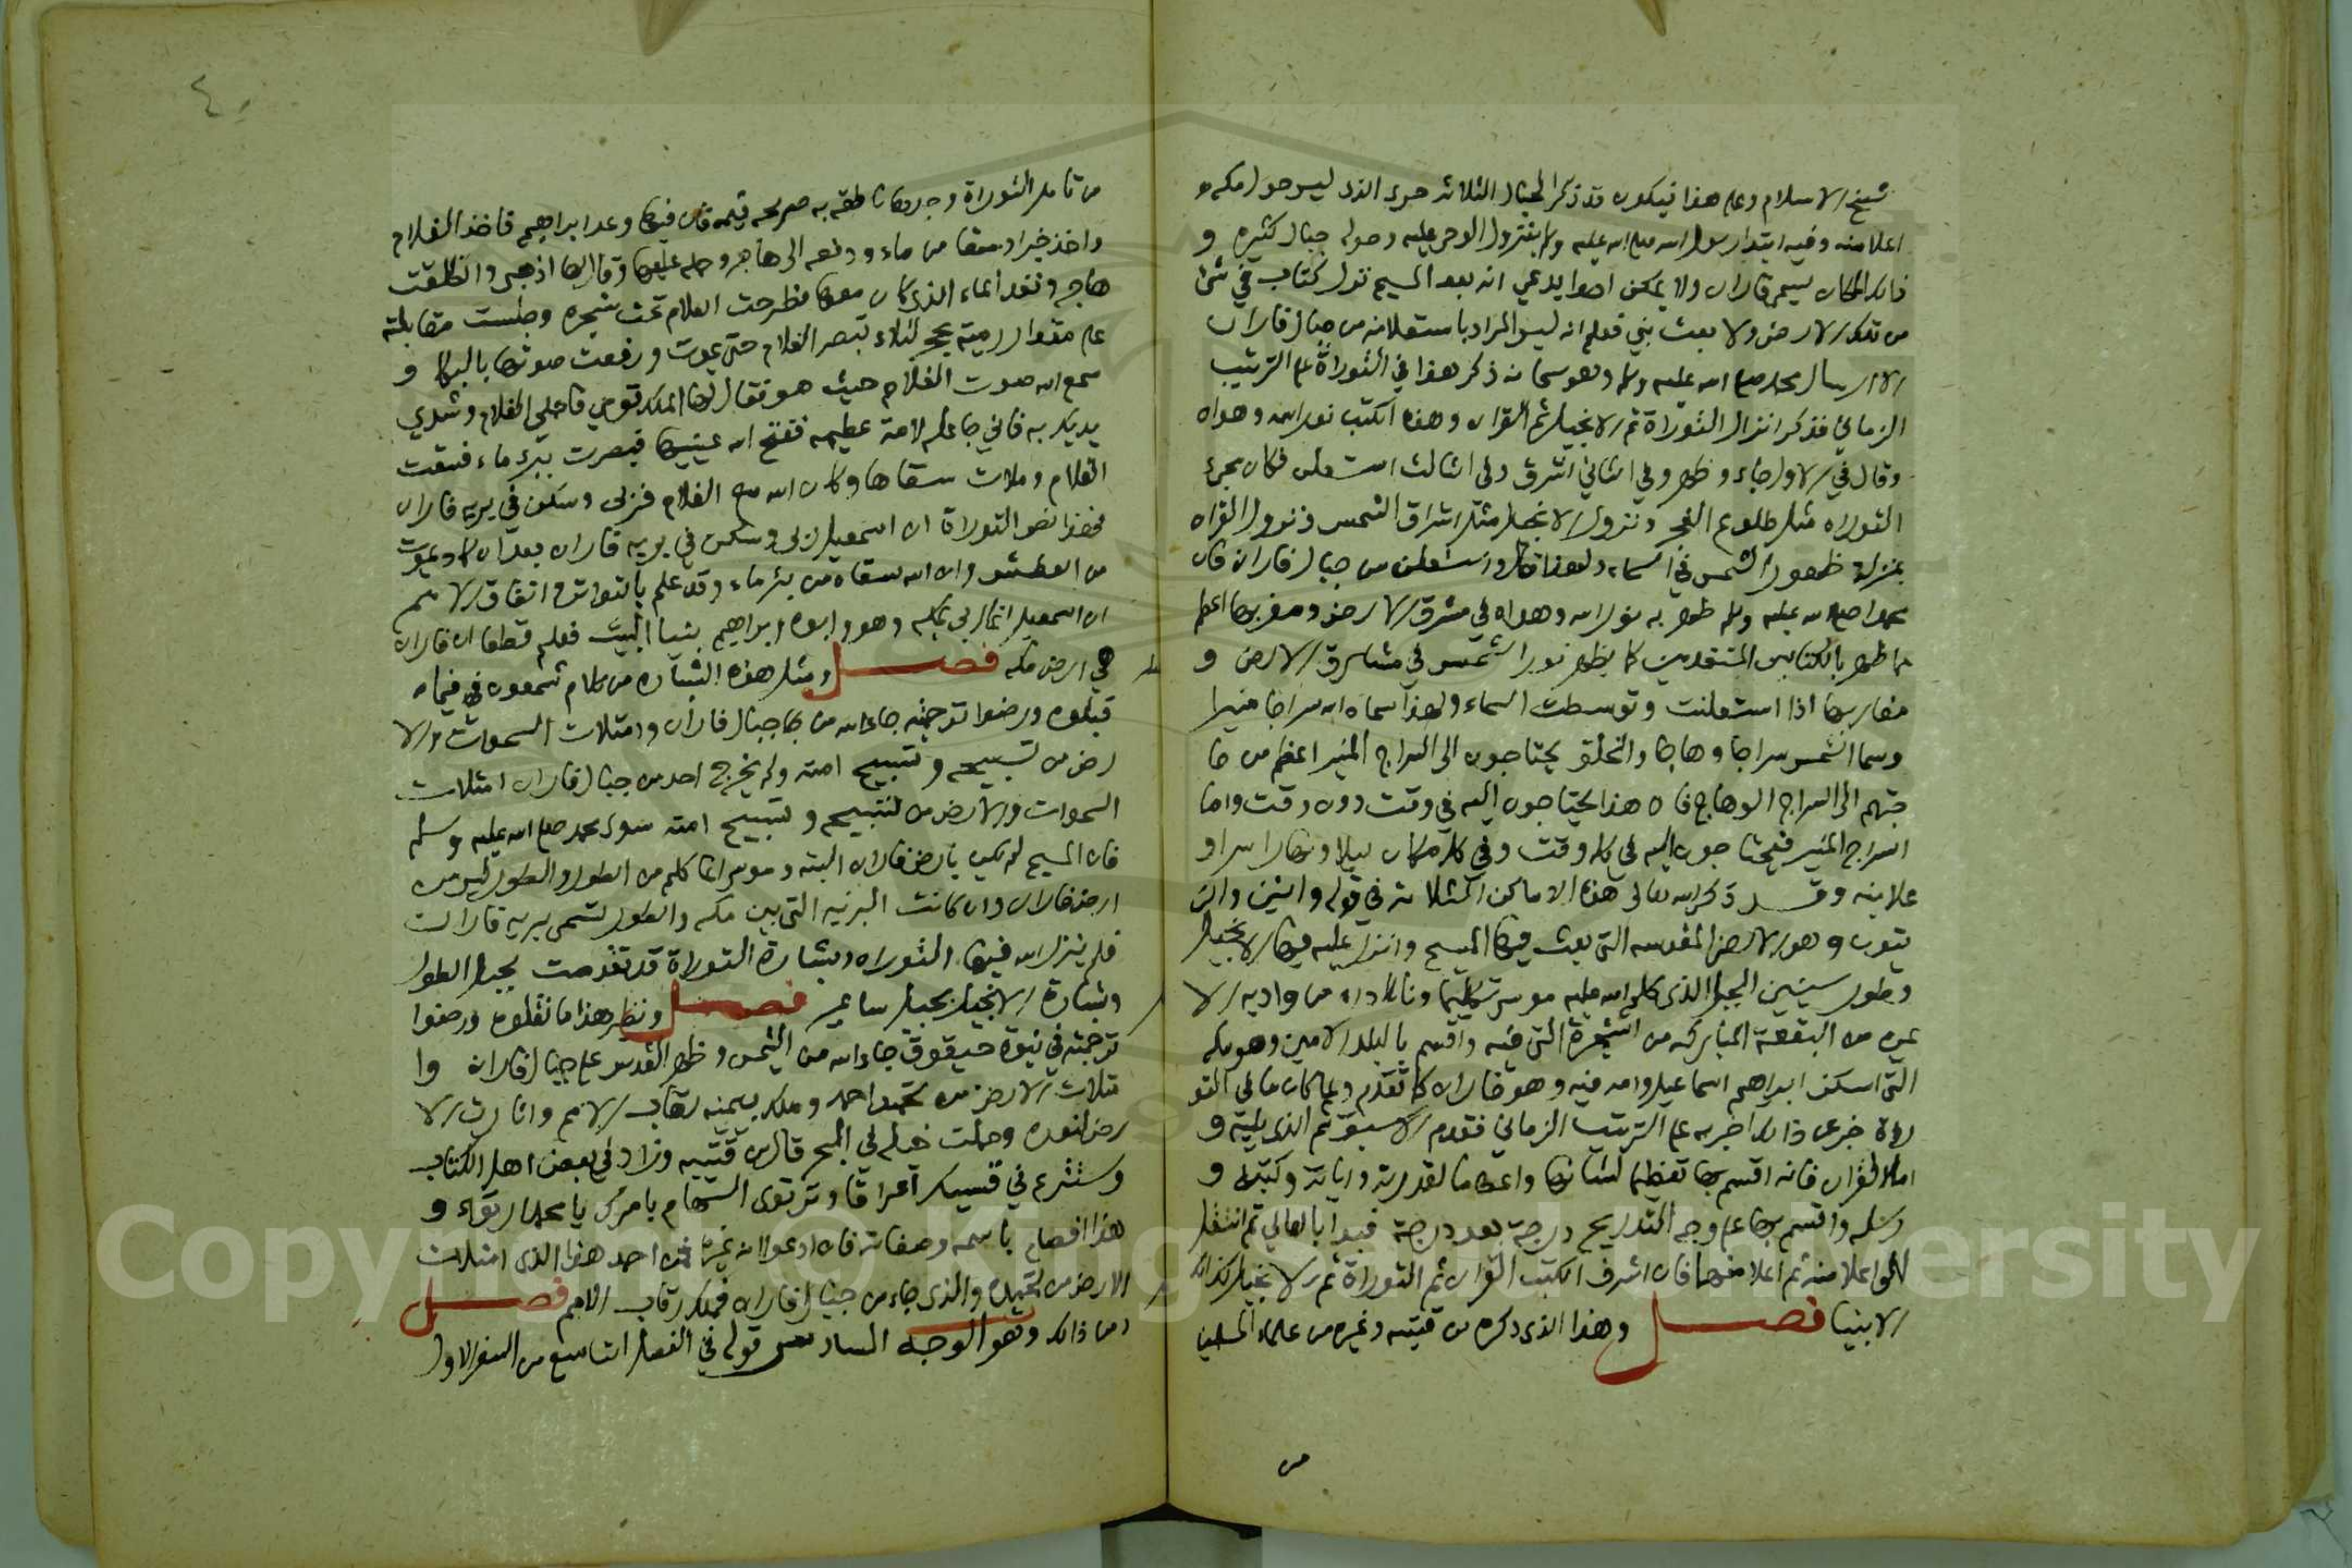 شيخ الاسلام وعلى هذا فيكون قد ذكر الجبال الثلاثه حرى الذي ليس حول مكه
اعلا منه وفيه ابتدا رسول الله صلى الله عليه وسلم بنزول الوحي عليه وحوله جبال كثيره و
ذلك المكان يسمى فاران ولا يمكن احدا يدعي انه بعد المسيح نزل كتاب في شئ
من تلك الارض ولا بعث نبي فعلم انه ليس المراد باستعلانه من جبال فاران
الا ارسال محمد صلى الله عليه وسلم وهو سبحانه ذكر هذا في التوراة على الترتيب
الزماني فذكر انزال التوراة ثم الانجيل ثم القران وهذه الكتب نور الله وهداه
وقال في الاول جاء وظهر وفي الثاني اشرق وفي الثالث استعلن فكان مجئ
التوراه مثل طلوع الفجر ونزول الانجيل مثل اشراق الشمس ونزول القران
بمنزلة ظهور الشمس في السماء ولهذا قال واستعلن من جبال فاران فان
محمدا صلى الله عليه وسلم ظهر به نور الله وهداه في مشرق الارض ومغربها اعظم
مما ظهر بالكتابين المتقدمين كما يظهر نور الشمس في مشارق الارض و
مغاربها اذا استعلنت وتوسطت السماء ولهذا سماه الله سراجا منيرا
وسما الشمس سراجا وهاجا والخلق يحتاجون الى السراج المنير اعظم من حا
جتهم الى السراج الوهاج فان هذا يحتاجون اليه في وقت دون وقت واما
السراج المنير فيحتاجون اليه في كل وقت وفي كل مكان ليلا ونهارا سرا و
علانيه وقد ذكر الله تعالى هذه الاماكن الثلاثه في قوله والتين والز
يتون وهو الارض المقدسه التي بعث فيها المسيح وانزل عليه فيها الانجيل
وطور سينين الجبل الذي كلم الله عليه موسى تكليما وناداه من واديه الا
يمن من البقعة المباركه من الشجرة التي فيه واقسم بالبلد الامين وهو مكه
التي اسكن ابراهيم اسماعيل وامه فيه وهو فاران كما تقدم ولما كان ما في التو
راة خبرا عن ذلك اخبر به على الترتيب الزماني فقدم الاسبق ثم الذي يليه و
اما القران فانه اقسم بها تعظيما لشانها واعظاما لقدرته واياته وكتبه و
رسله واقسم بها على وجه التدريج درجة بعد درجة فبدا بالعالي ثم انتقل
الى اعلا منه ثم اعلا منهما فان اشرف الكتب القران ثم التوراة ثم الانجيل وكذلك
الانبيا فصل وهذا الذي ذكره بن قتيبه وغيره من علماء المسلمين
من
٤٠
من تامل التوراة وجدها ناطقه به صريحه فيه فان فيها وعد ابراهيم فاخذ الغلام
واخذ خبزا وسقا من ماء ودفعه الى هاجر وحمله عليها وقال لها اذهبي وانطلقت
هاجر ونفد الماء الذي كان معها فطرحت الغلام تحت شجره وجلست مقابلته
على مقدار رمية بحجر لئلا تبصر الغلام حتى يموت ورفعت صوتها بالبكا و
سمع الله صوت الغلام حيث هو فقال لها الملك قومي فاحملي الغلام وشدي
يديك به فاني جاعله لامة عظيمه ففتح الله عينيها فبصرت ببئر ماء فسقت
الغلام وملات سقاها وكان الله مع الغلام فربى وسكن في بريه فاران
فهذا نص التوراة ان اسمعيل ربي وسكن في بريه فاران بعد ان كاد يموت
من العطش وان الله سقاه من بئر ماء وقد علم بالتواتر واتفاق الامم
ان اسمعيل انما ربي بمكه وهو وابوه ابراهيم بنيا البيت فعلم قطعا ان فاران
هي ارض مكه فصل ومثل هذه البشاره من كلام شمعون فيما
قبلوه ورضوا ترجمته جاء الله من جبال فاران وامتلات السموات والا
رض من تسبيحه وتسبيح امته ولم يخرج احد من جبال فاران امتلات
السموات والارض من تسبيحه وتسبيح امته سوى محمد صلى الله عليه وسلم
فان المسيح لم يكن بارض فاران البته وموسى انما كلم من الطور والطور ليس من
ارض فاران وان كانت البريه التي بين مكه والطور تسمى بريه فاران
فلم ينزل الله فيها التوراه وبشارة التوراة قد تقدمت بجبل الطور
وبشارة الانجيل بجبل ساعير فصل ونظير هذا ما نقلوه ورضوا
ترجمته في نبوة حبقوق جاء الله من التيمن وظهر القدس على جبال فاران وا
متلات الارض من تحميد احمد وملك بيمينه رقاب الامم وانارت الا
رض لنوره وحملت خيله في البحر قال بن قتيبه وزاد في بعض اهل الكتاب
وستنزع في قسيك اغراقا وترتوى السهام بامرك يا محمد ارتواء و
هذا افصاح باسمه وصفاته فان ادعوا انه غيره فمن احمد هذا الذي امتلات
الارض من تحميده والذي جاء من جبال فاران فملك رقاب الامم فصل
ومن ذلك وهو الوجه السادس قوله في الفصل التاسع من السفر الاول
Copyright © King Saud University